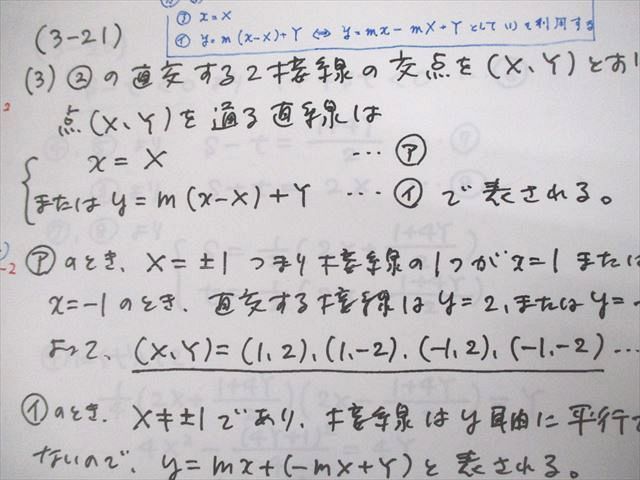 ㋐ x=X
㋑ y=m(x-X)+Y ⇔ y=mx-mX+Y として(ii)を利用する
(3-21)
(3) ②の直交する2接線の交点を(X、Y)とおけ
点(X、Y)を通る直線は
x=X …㋐
または y=m(x-X)+Y …㋑ で表される。
㋐のとき、X=±1 つまり接線の1つがx=1または
x=-1のとき、直交する接線はy=2,またはy=-
よって、(X,Y)=(1,2),(1,-2),(-1,2),(-1,-2)…
㋑のとき、X≠±1であり、接線はy軸に平行で
ないので、y=mx+(-mX+Y)と表される。